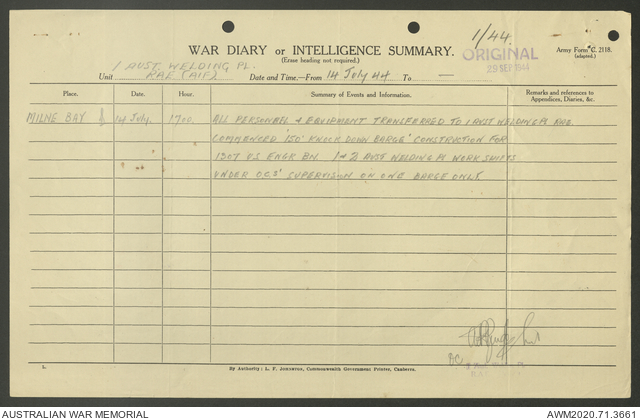 1/44.
WAR DIARY or INTELLIGENCE SUMMARY.
(Erase heading not required.)
ORIGINAL
29 SEP 1944
Army Form C. 2118.
(adapted.)
1 AUST. WELDING PL.
Unit RAE (AIF) Date and Time—From 14 July 44 To —
Place. Date. Hour. Summary of Events and Information. Remarks and references to
Appendices, Diaries, &c.
MILNE BAY 14 July. 1700. ALL PERSONNEL & EQUIPMENT TRANSFERRED TO 1 AUST WELDING PL RAE
COMMENCED 150' KNOCK DOWN BARGE' CONSTRUCTION FOR
1307 U.S. ENGR BN. 1 & 2 AUST WELDING PL WORK SHIFTS
UNDER O.C.S' SUPERVISON ON ONE BARGE ONLY.
OC
By Authority: L. F. Johnston, Commonwealth Government Printer, Canberra.
AUSTRALIAN WAR MEMORIAL AWM2020.71.3661